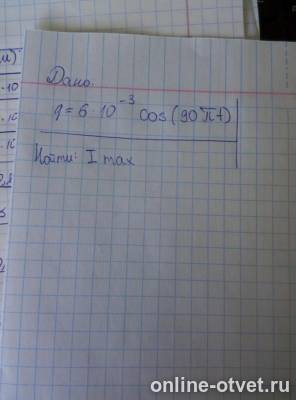 Дано.
q = 6 · 10⁻³ cos(90πt)
Найти: I max
online-otvet.ru